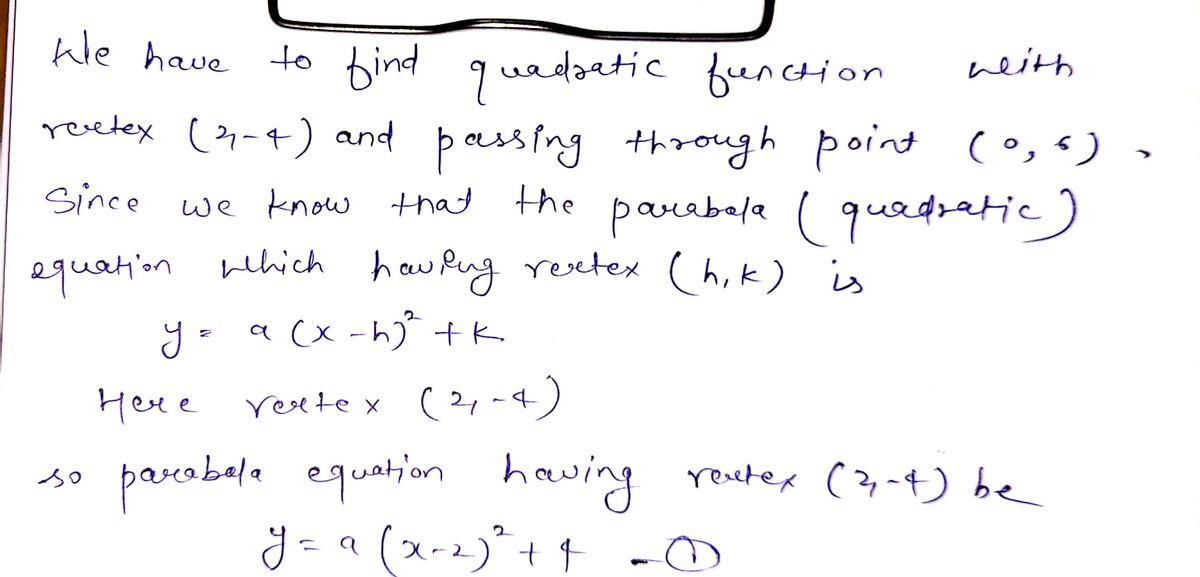 We have to find quadratic function with
vertex (2,-4) and passing through point (0,6).
Since we know that the parabola (quadratic)
equation which having vertex (h,k) is
y = a(x-h)² + k
Here vertex (2,-4)
so parabola equation having vertex (2,-4) be
y = a(x-2)² + 4 -①